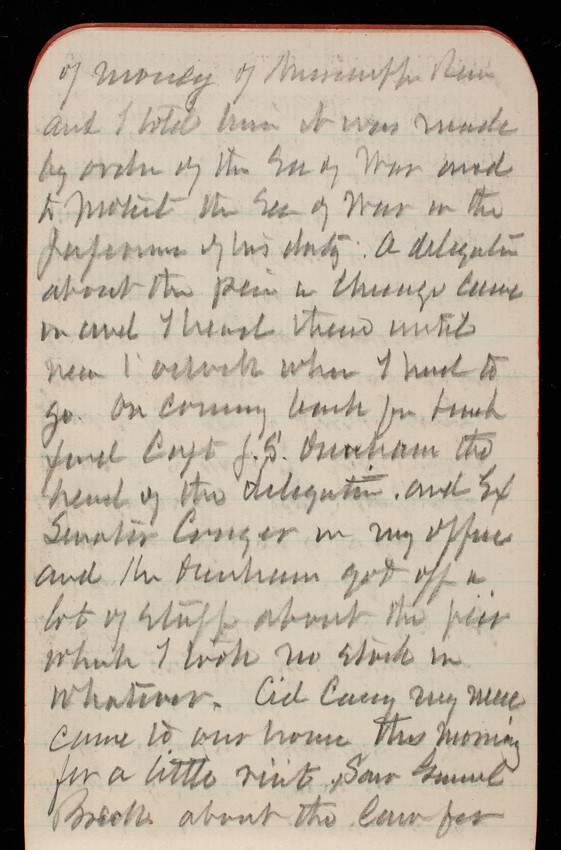 of money of Mississippi River
and I told him it was made
by order of the Sec of War and
to protect the Sec of War in the
performance of his duty. A delegation
about the pier in Chicago came
in and I heard them until
near 1 oclock when I had to
go. On coming back from lunch
found Capt J. S. Dunham the
head of the delegation. and Ex
Senator Conger in my office
and Mr Dunham got off a
lot of stuff about the pier
which I took no stock in
whatever. Cid Casey my niece
came to our house this morning
for a little visit. Saw General
Breck about the law for